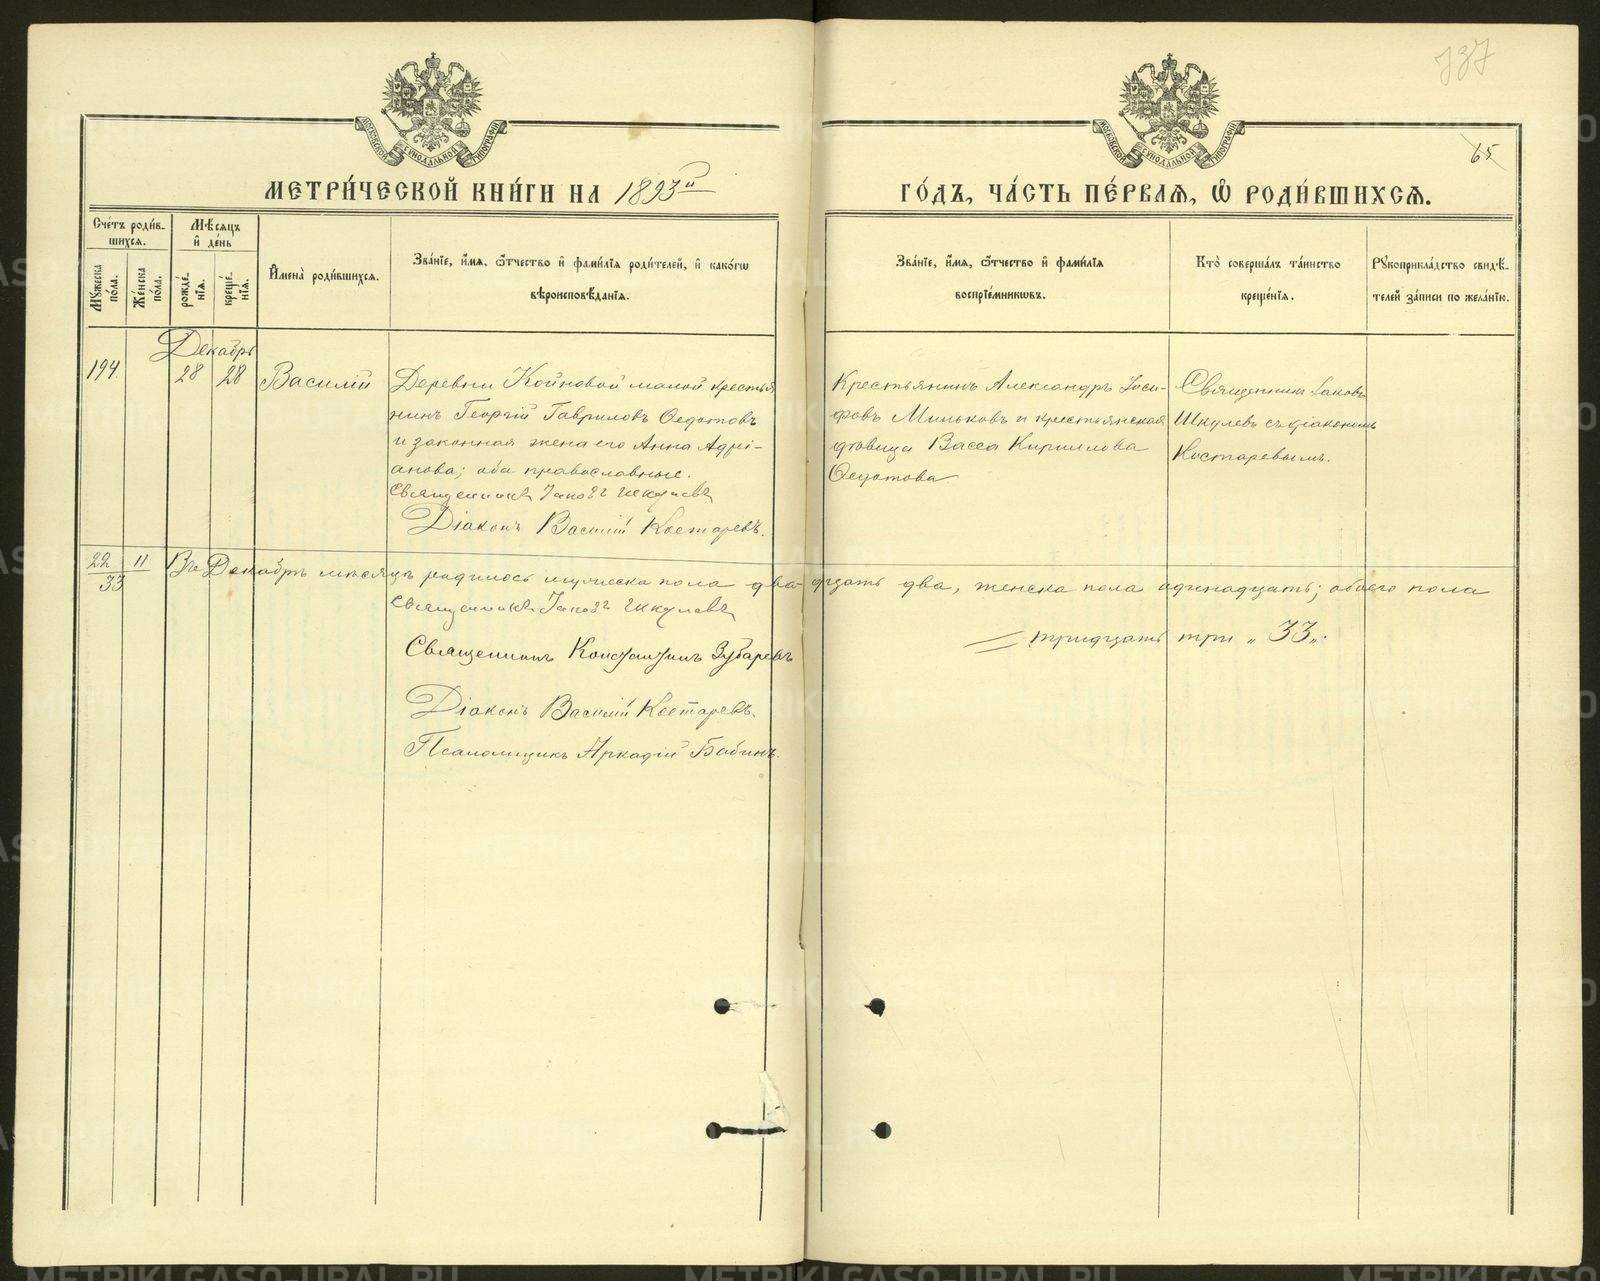 737
65
МОСКОВСКОЙ СѴНОДАЛЬНОЙ ТИПОГРАФІИ
МОСКОВСКОЙ СѴНОДАЛЬНОЙ ТИПОГРАФІИ
МЕТРИ́ЧЕСКОЙ КНИ́ГИ НА 1893й
ГО́ДЪ, ЧА́СТЬ ПЕ́РВАЯ, Ѿ РОДИ́ВШИХСЯ.
Сче́тъ роди́в-
шихся.
Мѣ́сяцъ
и҆ де́нь
Му́жеска по́ла.
Же́нска по́ла.
рожде́-
нія.
креще́-
нія.
И҆мена̀ роди́вшихся.
Зва́ніе, и҆́мя, ѻ҆́тчество и҆ фами́лія роди́телей, и҆ како́гѡ
вѣроисповѣ́данія.
Зва́ніе, и҆́мя, ѻ҆́тчество и҆ фами́лія
воспріе́мникѡвъ.
Кто̀ соверша́лъ та́инство
креще́нія.
Рукоприкла́дство свидѣ́-
телей за́писи по жела́нію.
Декабрь
194 28 28 Василій
Деревни Койновой малой крестья
нинъ Георгій Гавриловъ Ѳедотовъ
и законная жена его Анна Адрі-
анова; оба православные.
Священникъ Іаковъ Шкулевъ
Діаконъ Василій Костаревъ.
Крестьянинъ Александръ Іоси-
фовъ Мильковъ и крестьянская
дѣвица Васса Кириллова
Ѳедотова
Священникъ Іаковъ
Шкулевъ съ діакономъ
Костаревымъ.
22 11
33
Въ Декабрѣ мѣсяцѣ родилось мужеска пола двадцать два, женска пола одинадцать; обоего пола
тридцать три „ 33 „.
Священникъ Іаковъ Шкулевъ
Священникъ Константинъ Зубаревъ
Діаконъ Василій Костаревъ.
Псаломщикъ Аркадій Бабинъ.
METRIKI.GASO-URAL.RU